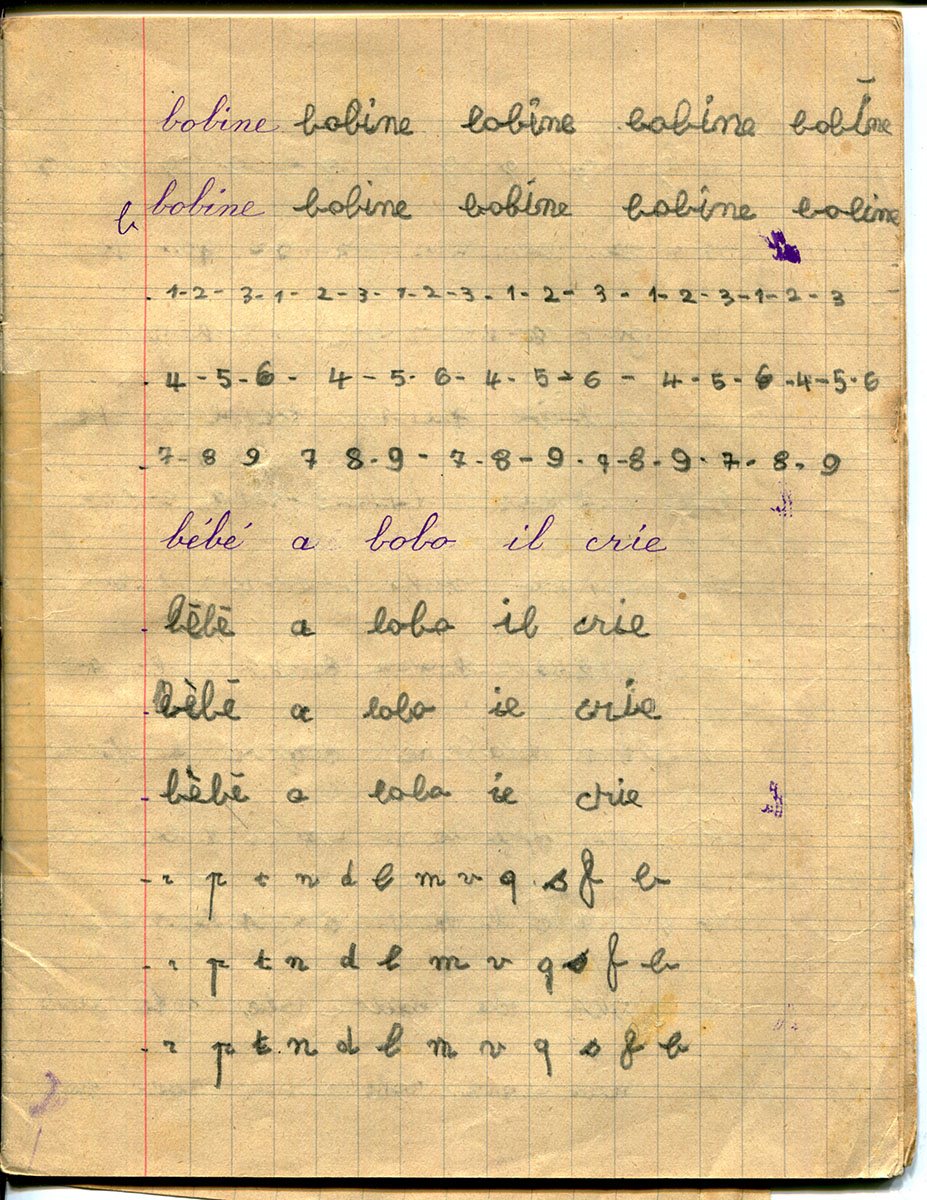 bobine bobine bobine bobine bobine
b bobine bobine bobine bobine bobine
1-2-3-1-2-3-1-2-3-1-2-3-1-2-3-1-2-3
4-5-6-4-5-6-4-5-6-4-5-6-4-5-6
7-8 9 7 8-9-7-8-9-7-8-9-7-8-9
bébé a bobo il crie
bébé a bobo il crie
bèbé a bobo ie crie
bèbé a bobo ie crie
r p t n d l m v q s f b
r p t n d l m v q s f b
r p t n d l m v q s f b